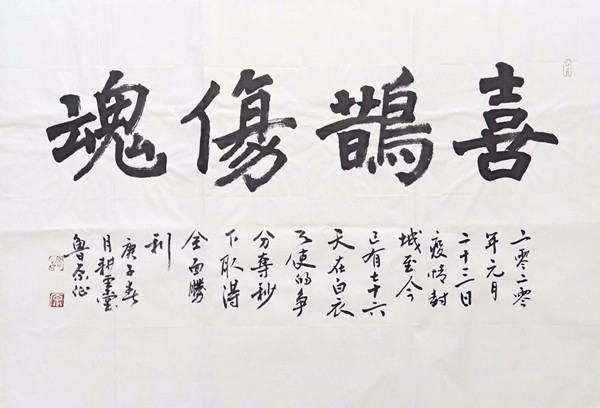 喜鵲傷魂
二零二零
年元月
二十三日
疫情封
城至今
已有七十六
天在白衣
天使的争
分奪秒
下取得
全面勝
利
庚子春
月耕
魯原